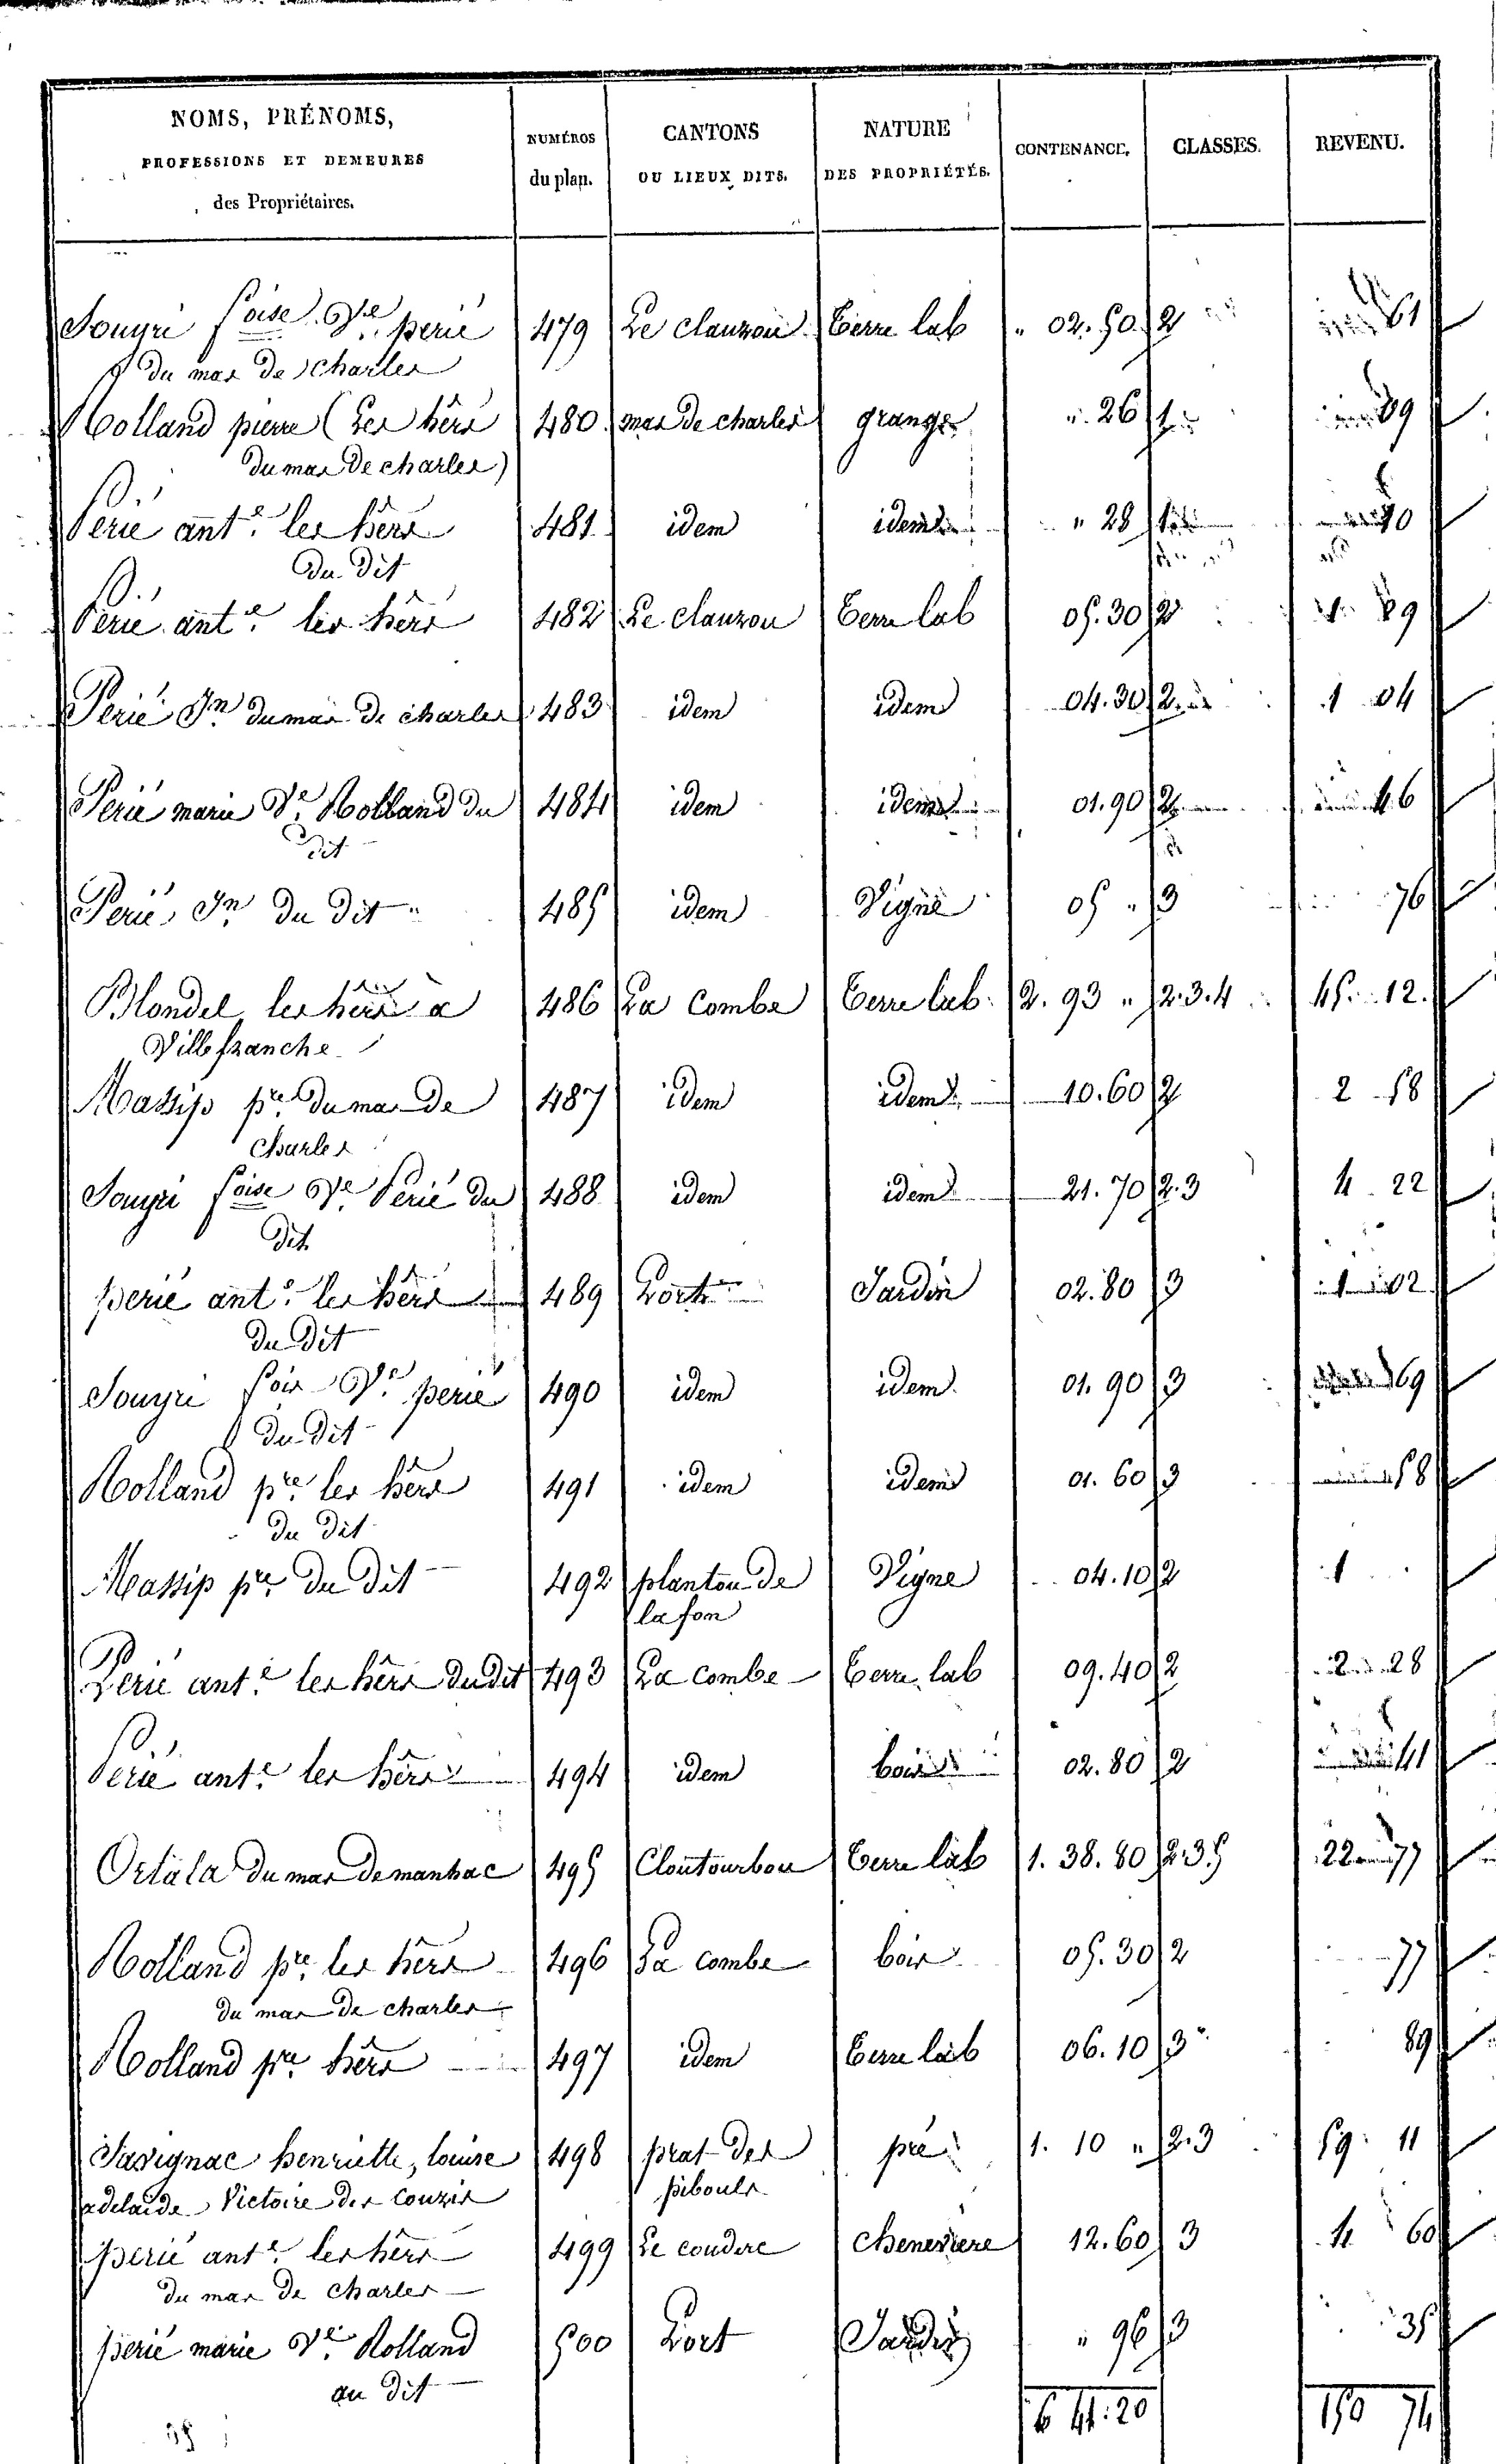 NOMS, PRÉNOMS, PROFESSIONS ET DEMEURES des Propriétaires. NUMÉROS du plan. CANTONS OU LIEUX DITS. NATURE DES PROPRIÉTÉS. CONTENANCE. CLASSES. REVENU.
Souyri foise Ve perié 479 Le clauzou terre lab " 02. 50 2 61
du mas de charles
Rolland pierre (les hers 480 mas de charles grange ". 26 1 89
du mas de charles)
Perié ante les hers 481 idem idem " 28 1
du dit
Perié ante les hers 482 Le clauzou terre lab 05. 30 2 89
Perié Jn du mas de charles 483 idem idem 04. 30 2 1 04
Perié marie Ve Rolland du 484 idem idem 01. 90 2 46
dit
Perié Jn du dit 485 idem Vigne 05 " 3 76
Blondel les hers à 486 La Combe terre lab. 2. 93 " 2. 3. 4 45. 12.
Villefranche
Massip pre du mas de 487 idem idem 10. 60 2 2 58
Charles
Souyri foise Ve Perié du 488 idem idem 21. 70 2. 3 4. 22
dit
perié ante les hers 489 hort Jardin 02. 80 3 1 02
du dit
Souyri fois Ve perié 490 idem idem 01. 90 3 69
du dit
Rolland pre les hers 491 idem idem 01. 60 3 58
du dit
Massip pre du dit 492 planton de Vigne 04. 10 2 1
la fon
Perié ante les hers du dit 493 La combe terre lab 09. 40 2 2 28
Perié ante les hers 494 idem bois 02. 80 2 41
Ortala du mas de manhac 495 Cloutourbou terre lab 1. 38. 80 2. 3. 5 22 77
Rolland pre les hers 496 La combe bois 05. 30 2 77
du mas de charles
Rolland pre hers 497 idem terre lab 06. 10 3 89
Savignac henriette, louise 498 prat des pré 1. 10 " 2. 3 59 11
adelaide Victoire des couzis pibouls
perié ante les hers 499 Le couderc cheneviere 12. 60 3 4 60
du mas de charles
perié marie Ve Rolland 500 hort Jardin " 96 3 35
du dit
6 41. 20 150 74